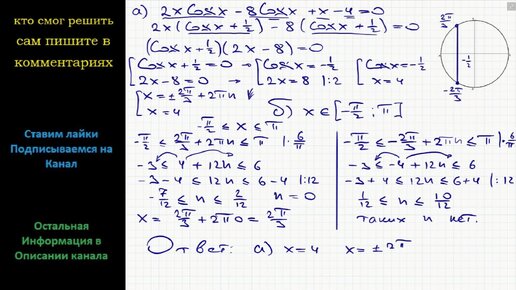 кто смог решить
сам пишите в
комментариях
Ставим лайки
Подписываемся на
Канал
Остальная
Информация в
Описании канала
а) 2x Cosx - 8Cosx + x - 4 = 0
2x(Cosx + 1/2) - 8(Cosx + 1/2) = 0
(Cosx + 1/2)(2x - 8) = 0
[Cosx + 1/2 = 0 → [Cosx = -1/2 [Cosx = -1/2
2x - 8 = 0 2x = 8 |:2 x = 4
[x = ± 2π/3 + 2πn
x = 4
б) x ∈ [-π/2 ; π]
-π/2 ≤ x ≤ π
-π/2 ≤ 2π/3 + 2πn ≤ π |·6/π
-3 ≤ 4 + 12n ≤ 6
-3 - 4 ≤ 12n ≤ 6 - 4 |:12
-7/12 ≤ n ≤ 2/12 n = 0
x = 2π/3 + 2π0 = 2π/3
-π/2 ≤ -2π/3 + 2πn ≤ π |·6/π
-3 ≤ -4 + 12n ≤ 6
-3 + 4 ≤ 12n ≤ 6 + 4 |:12
1/12 ≤ n ≤ 10/12
таких n нет.
Ответ: а) x = 4 x = ± 2π
2π/3
-1/2
-2π/3